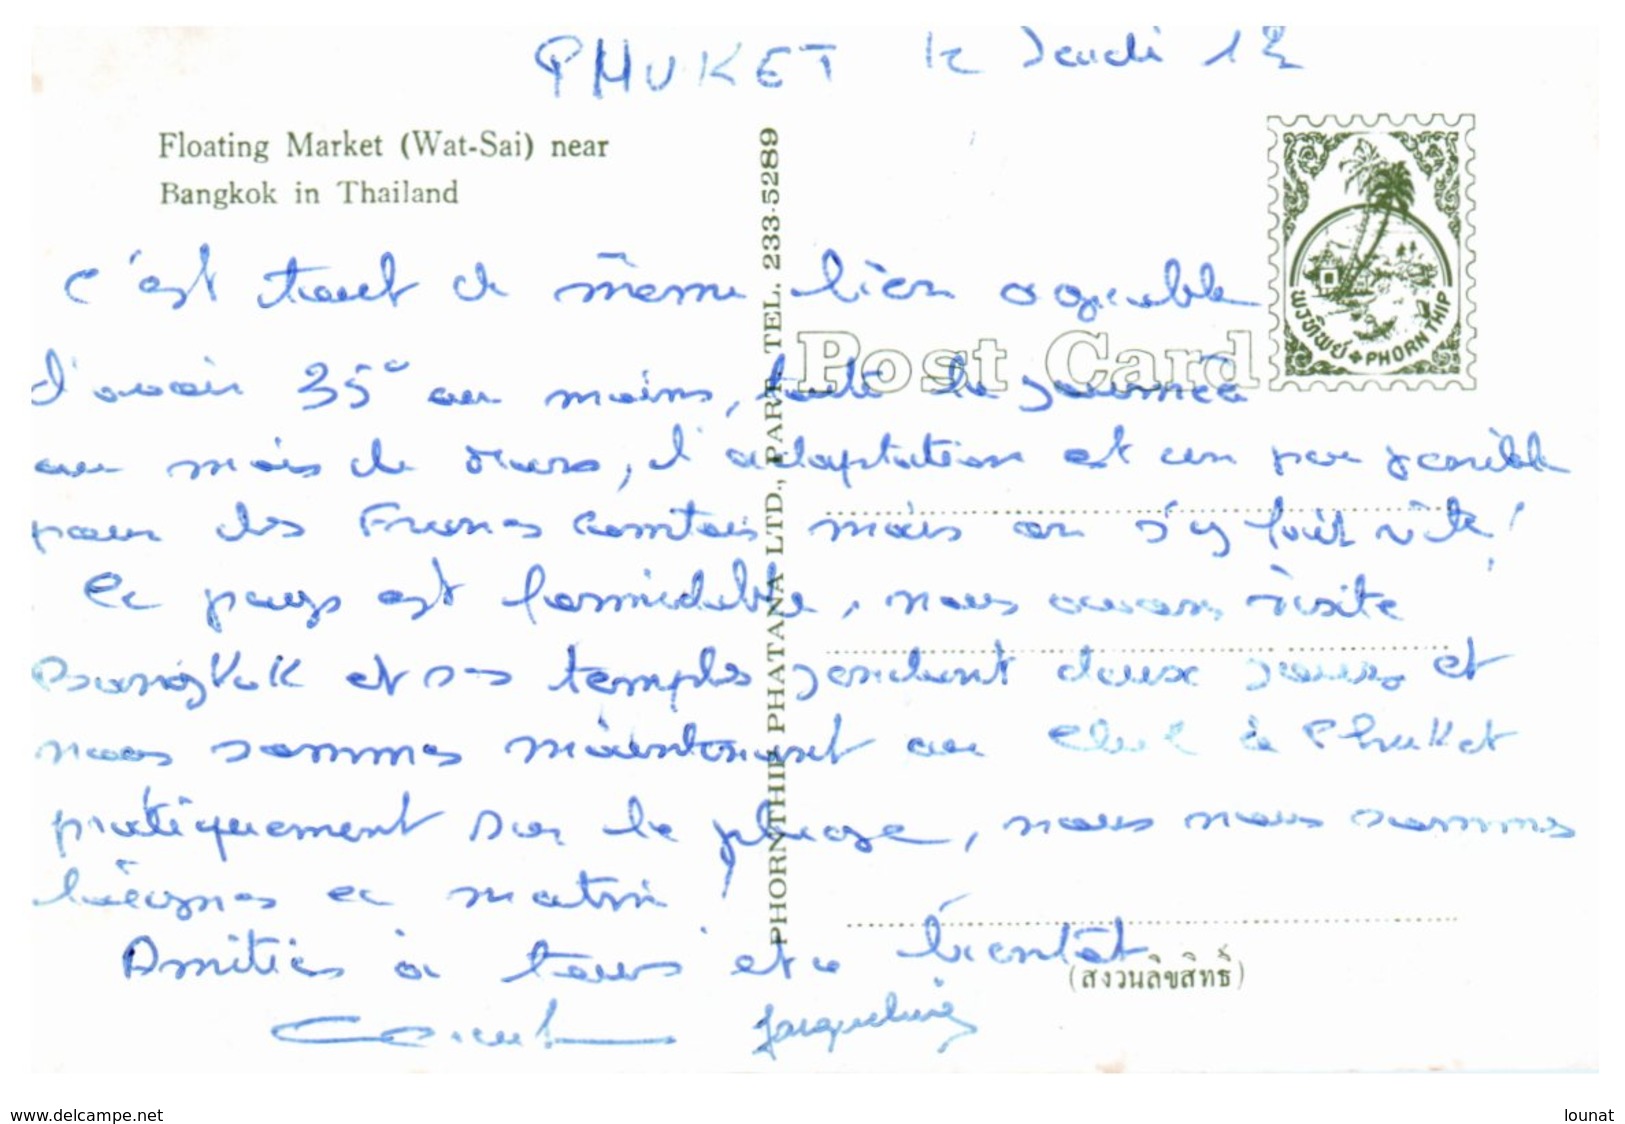 PHUKET le Jeudi 12
Floating Market (Wat-Sai) near
Bangkok in Thailand
PHORNTHIP PHATANA LTD., PART. TEL. 233-5289
พรทิพย์ PHORNTHIP
Post Card
C'est tout de même bien agréable
d'avoir 35° au moins, toute la journée
au mois de mars, l'adaptation est un peu pénible
pour des Francs Comtois mais on s'y fait vite!
Ce pays est formidable, nous avons visité
Bangkok et ses temples pendant deux jours et
nous sommes maintenant au Club à Phuket
pratiquement sur la plage, nous nous sommes
baignés ce matin!
Amitiés à tous et à bientôt
Jacqueline
(สงวนลิขสิทธิ์)
www.delcampe.net
lounat